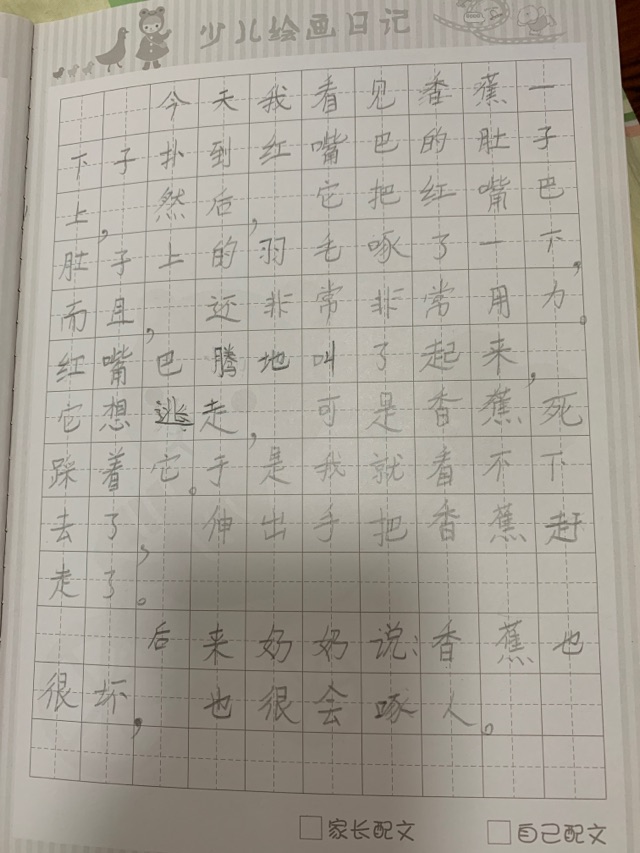 少儿绘画日记
今天我看见香蕉一
下子扑到红嘴巴的肚子
上，然后，它把红嘴巴
肚子上的羽毛啄了一下，
而且，还非常非常用力。
红嘴巴腾地叫了起来，
它想逃走，可是香蕉死
踩着它。于是我就看不下
去了，伸出手把香蕉赶
走了。
后来奶奶说：香蕉也
很坏，也很会啄人。
家长配文 自己配文